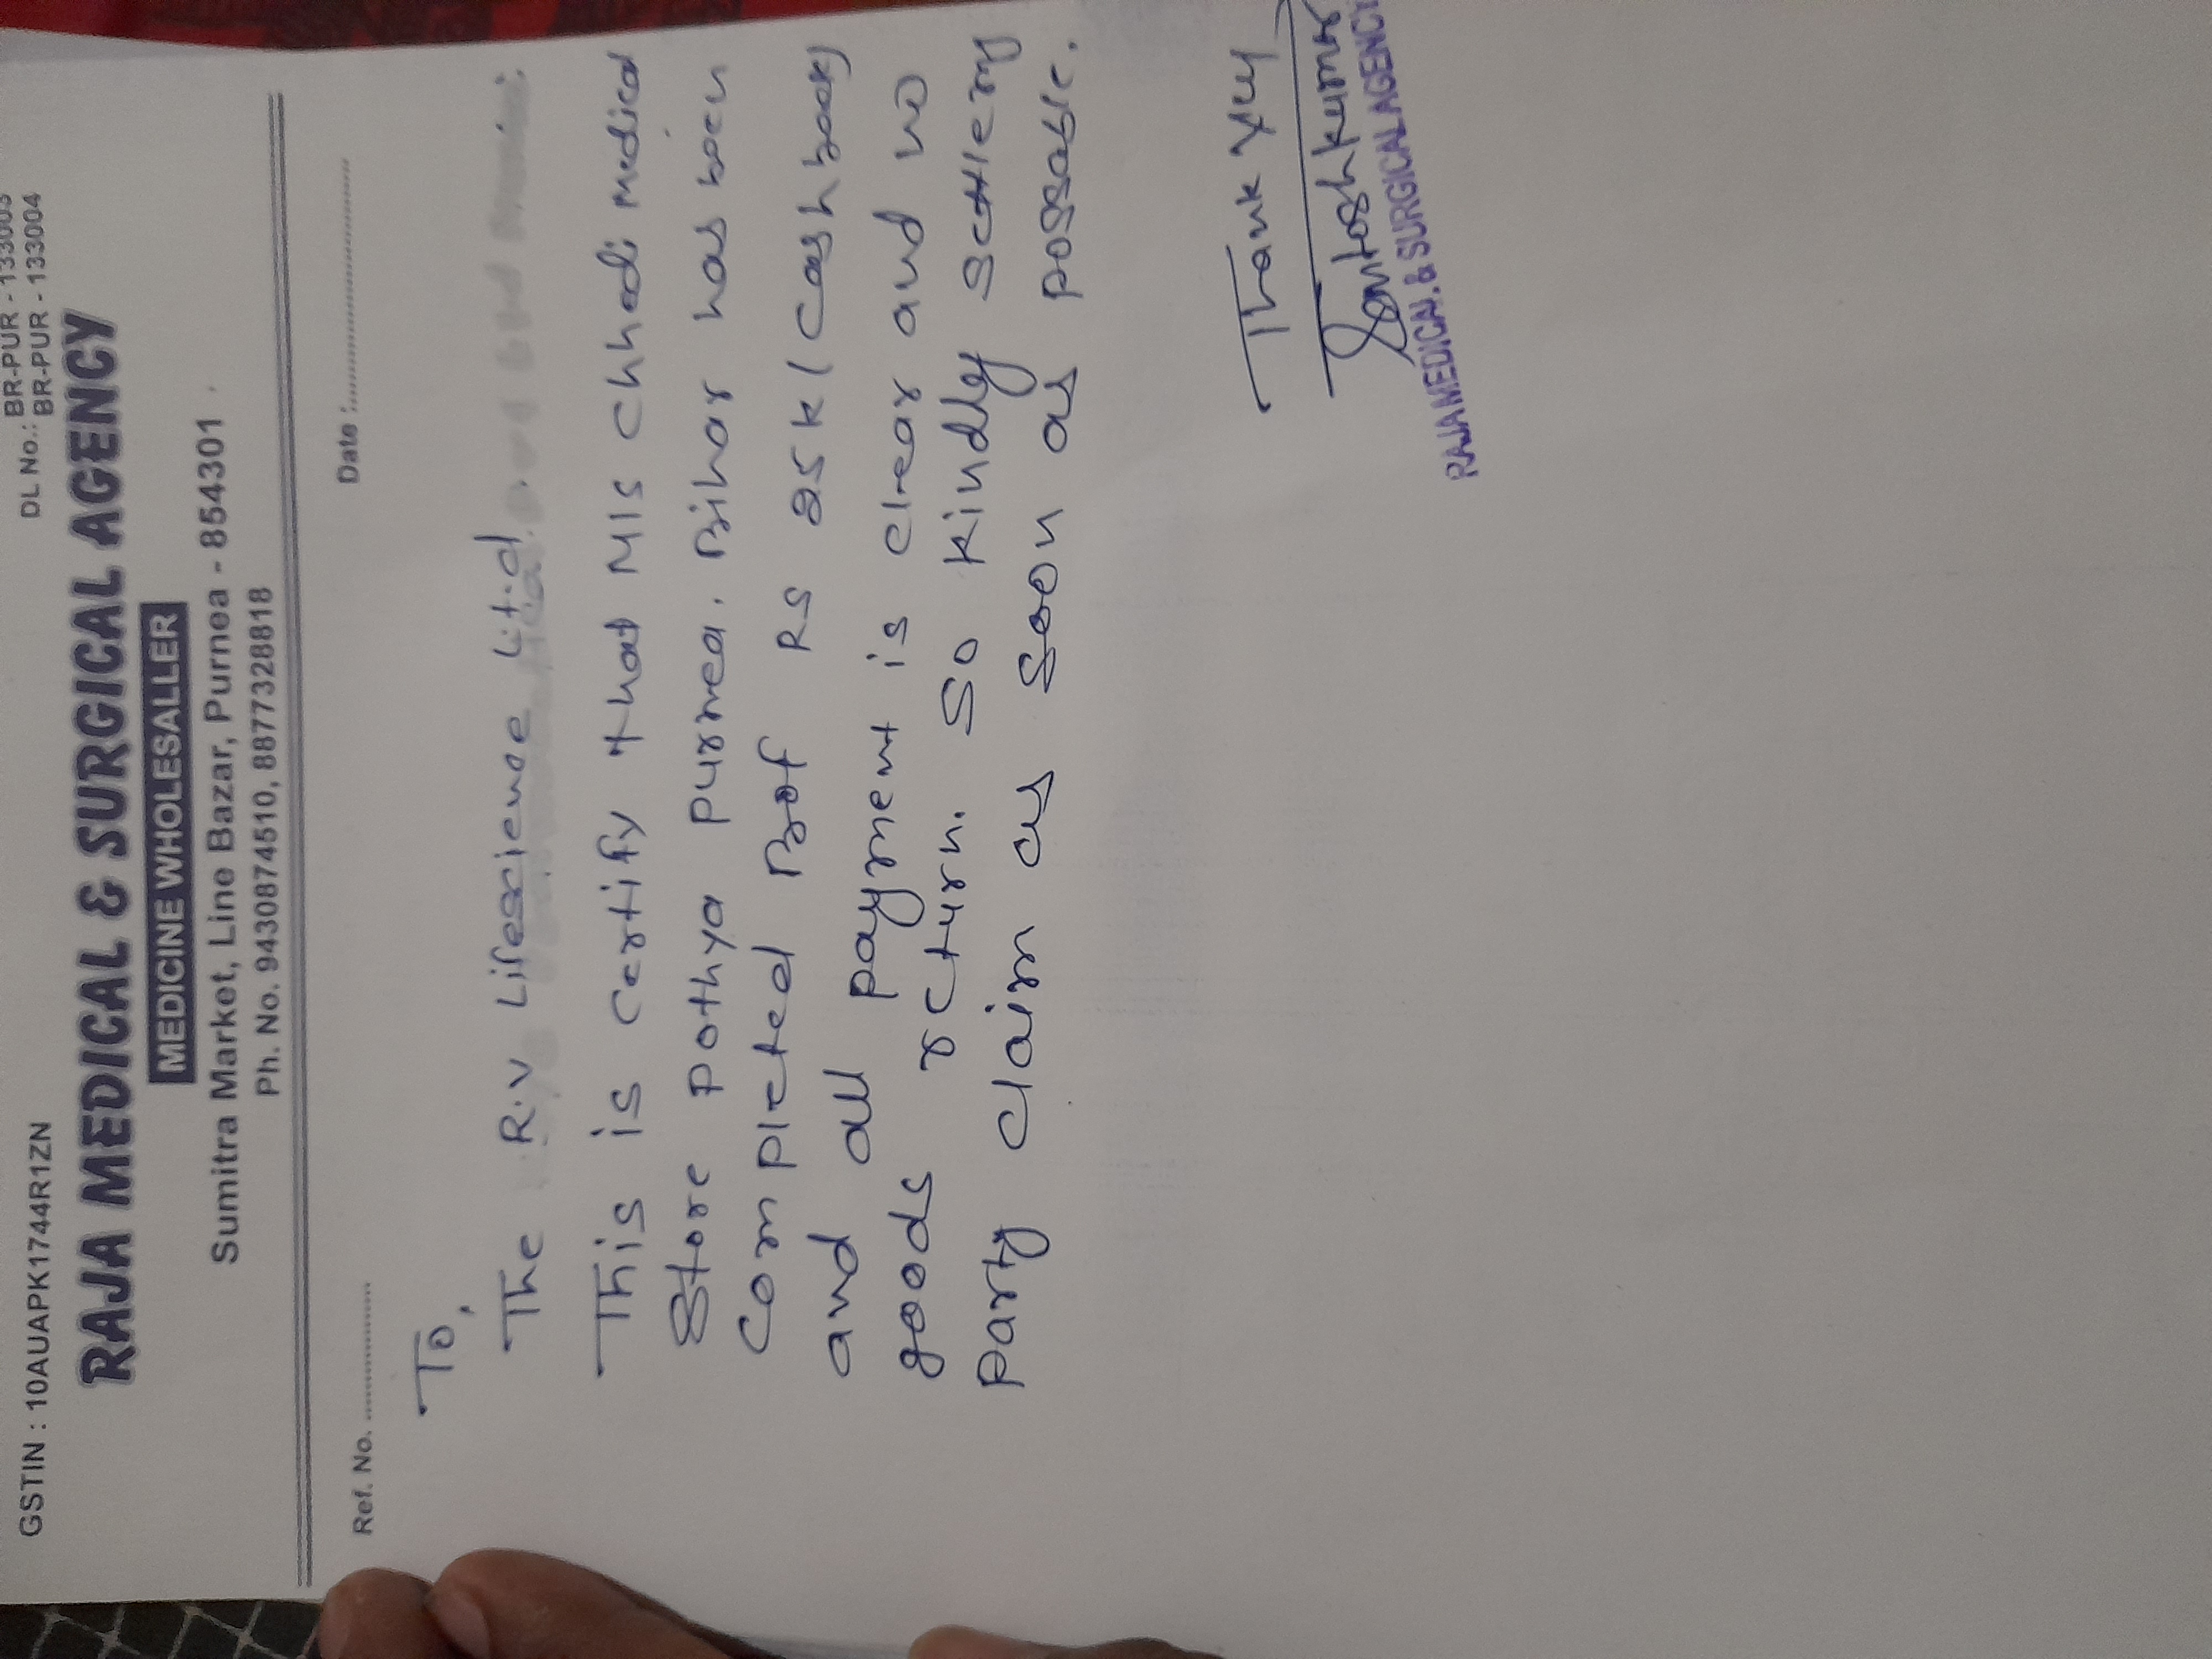 GSTIN : 10AUAPK1744R1ZN
DL No.: BR-PUR - 133003
BR-PUR - 133004
RAJA MEDICAL & SURGICAL AGENCY
MEDICINE WHOLESALLER
Sumitra Market, Line Bazar, Purnea - 854301
Ph. No. 9430874510, 8877328818
Ref. No. ................
Date :........................
To,
The R.V Lifescience Lit.d
This is certify that M/s chhedi medical
Store Pothya purnea. Bihar has been
Completed Bof Rs 25K (Cash book)
and all payment is clear and no
goods return. So kindly settlem
Party claim as soon as possable.
Thank you
Santosh kumar
RAJA MEDICAL & SURGICAL AGENCY